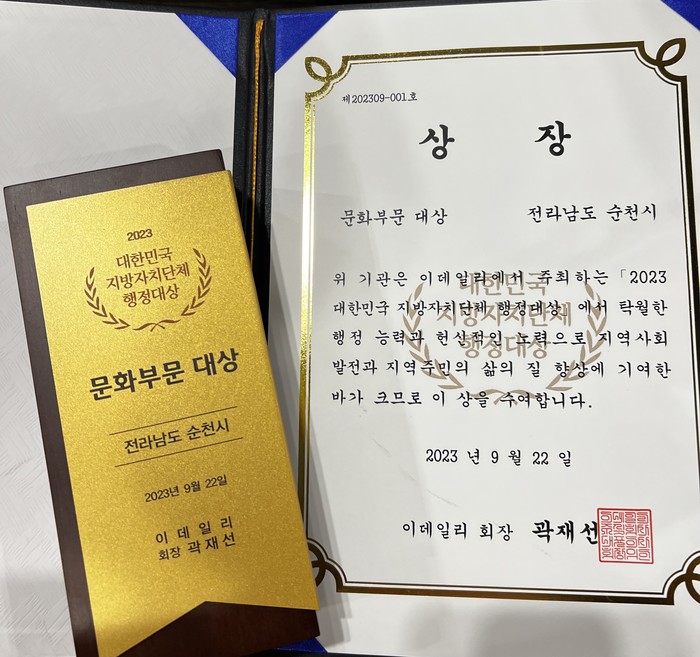 2023
대한민국
지방자치단체
행정대상
문화부문 대상
전라남도 순천시
2023년 9월 22일
이 데 일 리
회장 곽재선
제202309-001호
상 장
문화부문 대상 전라남도 순천시
위 기관은 이데일리에서 주최하는「2023
대한민국 지방자치단체 행정대상」에서 탁월한
행정 능력과 헌신적인 노력으로 지역사회
발전과 지역주민의 삶의 질 향상에 기여한
바가 크므로 이 상을 수여합니다.
대한민국
지방자치단체
행정대상
2023 년 9 월 22 일
이데일리 회장 곽재선